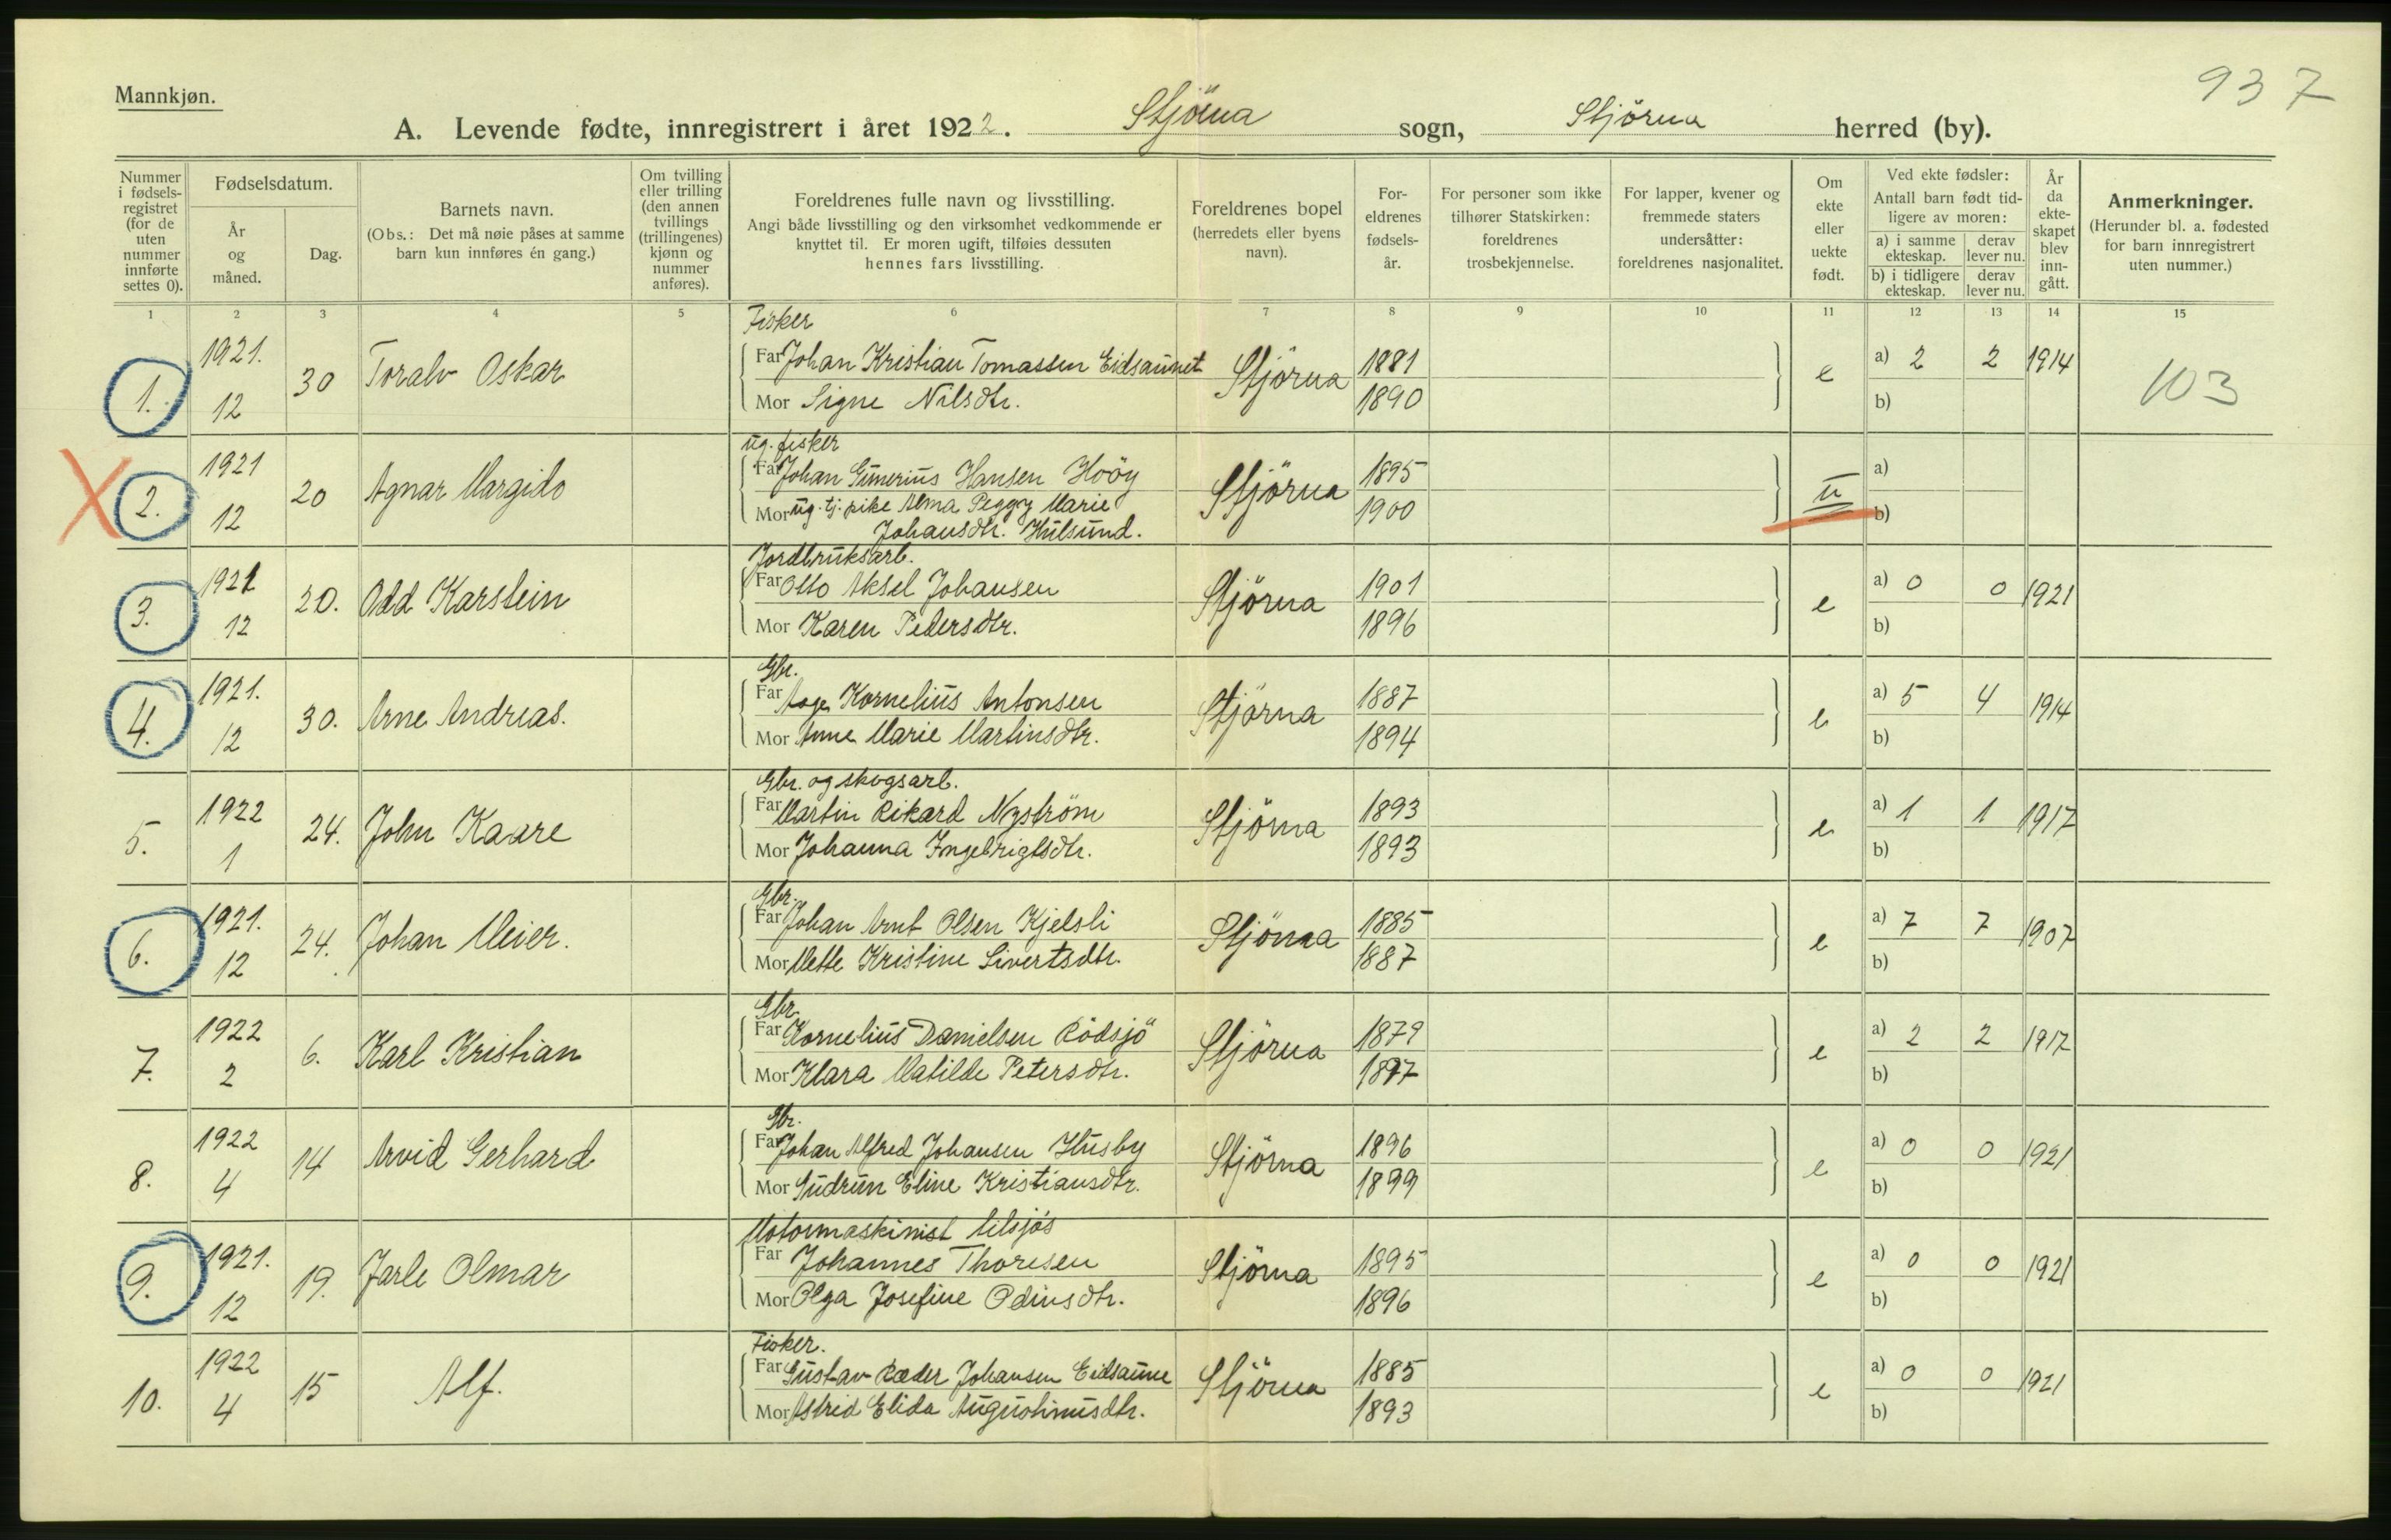 937
Mannkjøn.
A. Levende fødte, innregistrert i året 1922. Stjörna sogn, Stjörna herred (by).
Nummer i fødsels-registret (for de uten nummer innførte settes 0).
Fødselsdatum.
År og måned.
Dag.
Barnets navn.
(Obs.: Det må nøie påses at samme barn kun innføres én gang.)
Om tvilling eller trilling (den annen tvillings (trillingenes) kjønn og nummer anføres).
Foreldrenes fulle navn og livsstilling.
Angi både livsstilling og den virksomhet vedkommende er knyttet til. Er moren ugift, tilføies dessuten hennes fars livsstilling.
Foreldrenes bopel (herredets eller byens navn).
For-eldrenes fødsels-år.
For personer som ikke tilhører Statskirken: foreldrenes trosbekjennelse.
For lapper, kvener og fremmede staters undersåtter: foreldrenes nasjonalitet.
Om ekte eller uekte født.
Ved ekte fødsler:
Antall barn født tid-ligere av moren:
a) i samme ekteskap. derav lever nu.
b) i tidligere ekteskap. derav lever nu.
År da ekte-skapet blev inn-gått.
Anmerkninger.
(Herunder bl. a. fødested for barn innregistrert uten nummer.)
1 2 3 4 5 6 7 8 9 10 11 12 13 14 15
Fisker
1. 1921. 12 30 Toralv Oskar Far Johan Kristian Tomassen Eidsaunet Stjörna 1881 e a) 2 2 1914 103
Mor Signe Nilsdtr. 1890 b)
ug. fisker
X 2. 1921 12 20 Agnar Margido Far Johan Gunerius Hansen Hoöy Stjörna 1895 u a)
Mor ug. tj. pike Alma Peggy Marie 1900 b)
Johansdtr. Hulsund.
Jordbruksarb.
3. 1921 12 20. Odd Karstein Far Otto Aksel Johansen Stjörna 1901 e a) 0 0 1921
Mor Karen Pedersdtr. 1896 b)
Gbr.
4. 1921. 12 30. Arne Andreas. Far Aage Kornelius Antonsen Stjörna 1887 e a) 5 4 1914
Mor Anne Marie Martinsdtr. 1894 b)
Gbr. og skogsarb.
5. 1922 1 24. John Kaare Far Martin Rikard Nyström Stjörna 1893 e a) 1 1 1917
Mor Johanna Ingebrigtsdtr. 1893 b)
Gbr.
6. 1921. 12 24. Johan Meier. Far Johan Arnt Olsen Kjelsli Stjörna 1885 e a) 7 7 1907
Mor Mette Kristine Sivertsdtr. 1887 b)
Gbr.
7. 1922 2 6. Karl Kristian Far Kornelius Danielsen Rödsjö Stjörna 1879 e a) 2 2 1917
Mor Klara Matilde Petersdtr. 1897 b)
Gbr.
8. 1922 4 14 Arvid Gerhard Far Johan Alfred Johansen Husby Stjörna 1896 e a) 0 0 1921
Mor Gudrun Eline Kristiansdtr. 1899 b)
Motormaskinist tilsjøs
9. 1921. 12 19. Jarle Olmar Far Johannes Thoresen Stjörna 1895 e a) 0 0 1921
Mor Olga Josefine Odinsdtr. 1896 b)
Fisker.
10. 1922 4 15 Alf. Far Gustav Ræder Johansen Eidsaune Stjörna 1885 e a) 0 0 1921
Mor Astrid Elida Augustinusdtr. 1893 b)